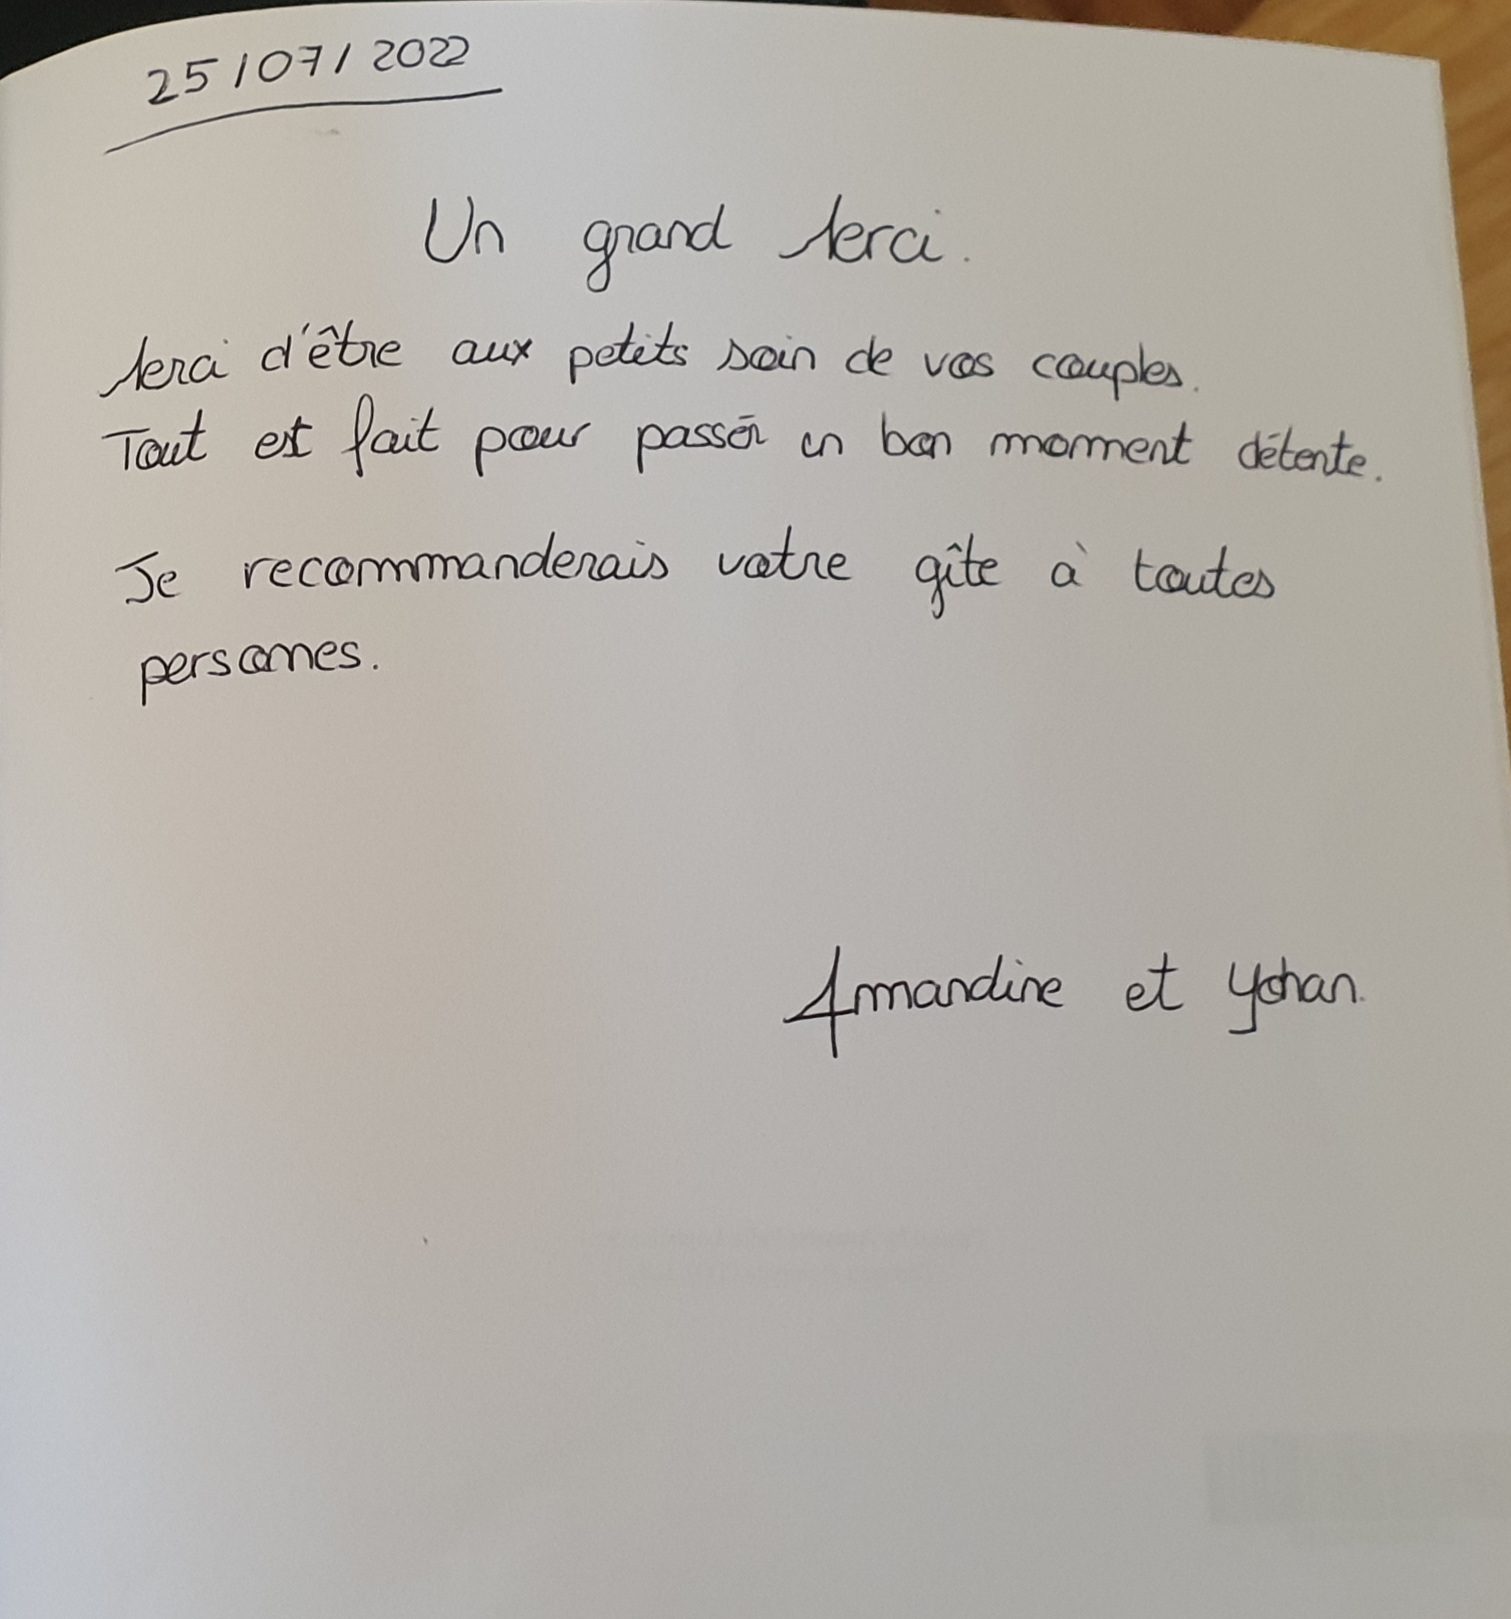 25/07/2022
Un grand Merci.
Merci d'être aux petits soin de vos couples.
Tout est fait pour passer un bon moment détente.
Je recommanderais votre gîte à toutes
personnes.
Amandine et Yohan.